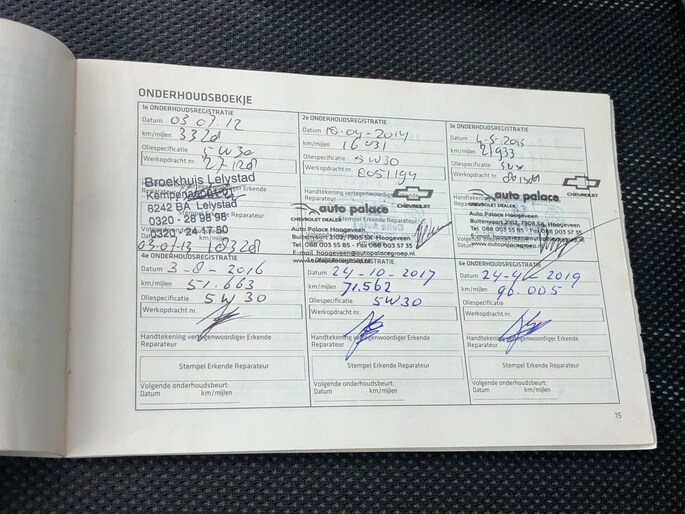 ONDERHOUDSBOEKJE
1e ONDERHOUDSREGISTRATIE
Datum 03 07.12
km/mijlen 3328
Oliespecificatie 5W30
Werkopdracht nr.
Broekhuis Lelystad
8242 BA Lelystad
0320 - 28 98 98
0320 - 24 17 50
03.07.13 18328
2e ONDERHOUDSREGISTRATIE
Datum 18-04-2014
km/mijlen 16 031
Oliespecificatie 5W30
Werkopdracht nr.
Handtekening vertegenwoordiger Erkende
auto palace
CHEVROLET DEALER
CHEVROLET
Auto Palace Hoogeveen
Buitenvaart 2102, 7905 SX Hoogeveen
Tel 088 003 55 85 - Fax 088 003 57 35
E-mail hoogeveen@autopalacegroep.nl
3e ONDERHOUDSREGISTRATIE
Datum 4-5-2015
km/mijlen
Oliespecificatie
Werkopdracht nr.
Handtekening vertegenwoordiger Erkende
auto palace
CHEVROLET DEALER
CHEVROLET
Auto Palace Hoogeveen
Buitenvaart 2102, 7905 SX Hoogeveen
Tel 088 003 55 85 - Fax 088 003 57 35
E-mail hoogeveen@autopalacegroep.nl
4e ONDERHOUDSREGISTRATIE
Datum 3-8-2016
km/mijlen 51.663
Oliespecificatie 5W30
Werkopdracht nr.
Handtekening vertegenwoordiger Erkende
Reparateur
Stempel Erkende Reparateur
Volgende onderhoudsbeurt:
Datum km/mijlen
Datum 24-10-2017
km/mijlen 71.562
Oliespecificatie 5W30
Werkopdracht nr.
Handtekening vertegenwoordiger Erkende
Reparateur
Stempel Erkende Reparateur
Volgende onderhoudsbeurt:
Datum km/mijlen
6e ONDERHOUDSREGISTRATIE
Datum 24-4-2019
km/mijlen 96.005
Oliespecificatie
Werkopdracht nr.
Handtekening vertegenwoordiger Erkende
Reparateur
Stempel Erkende Reparateur
Volgende onderhoudsbeurt:
Datum km/mijlen
15